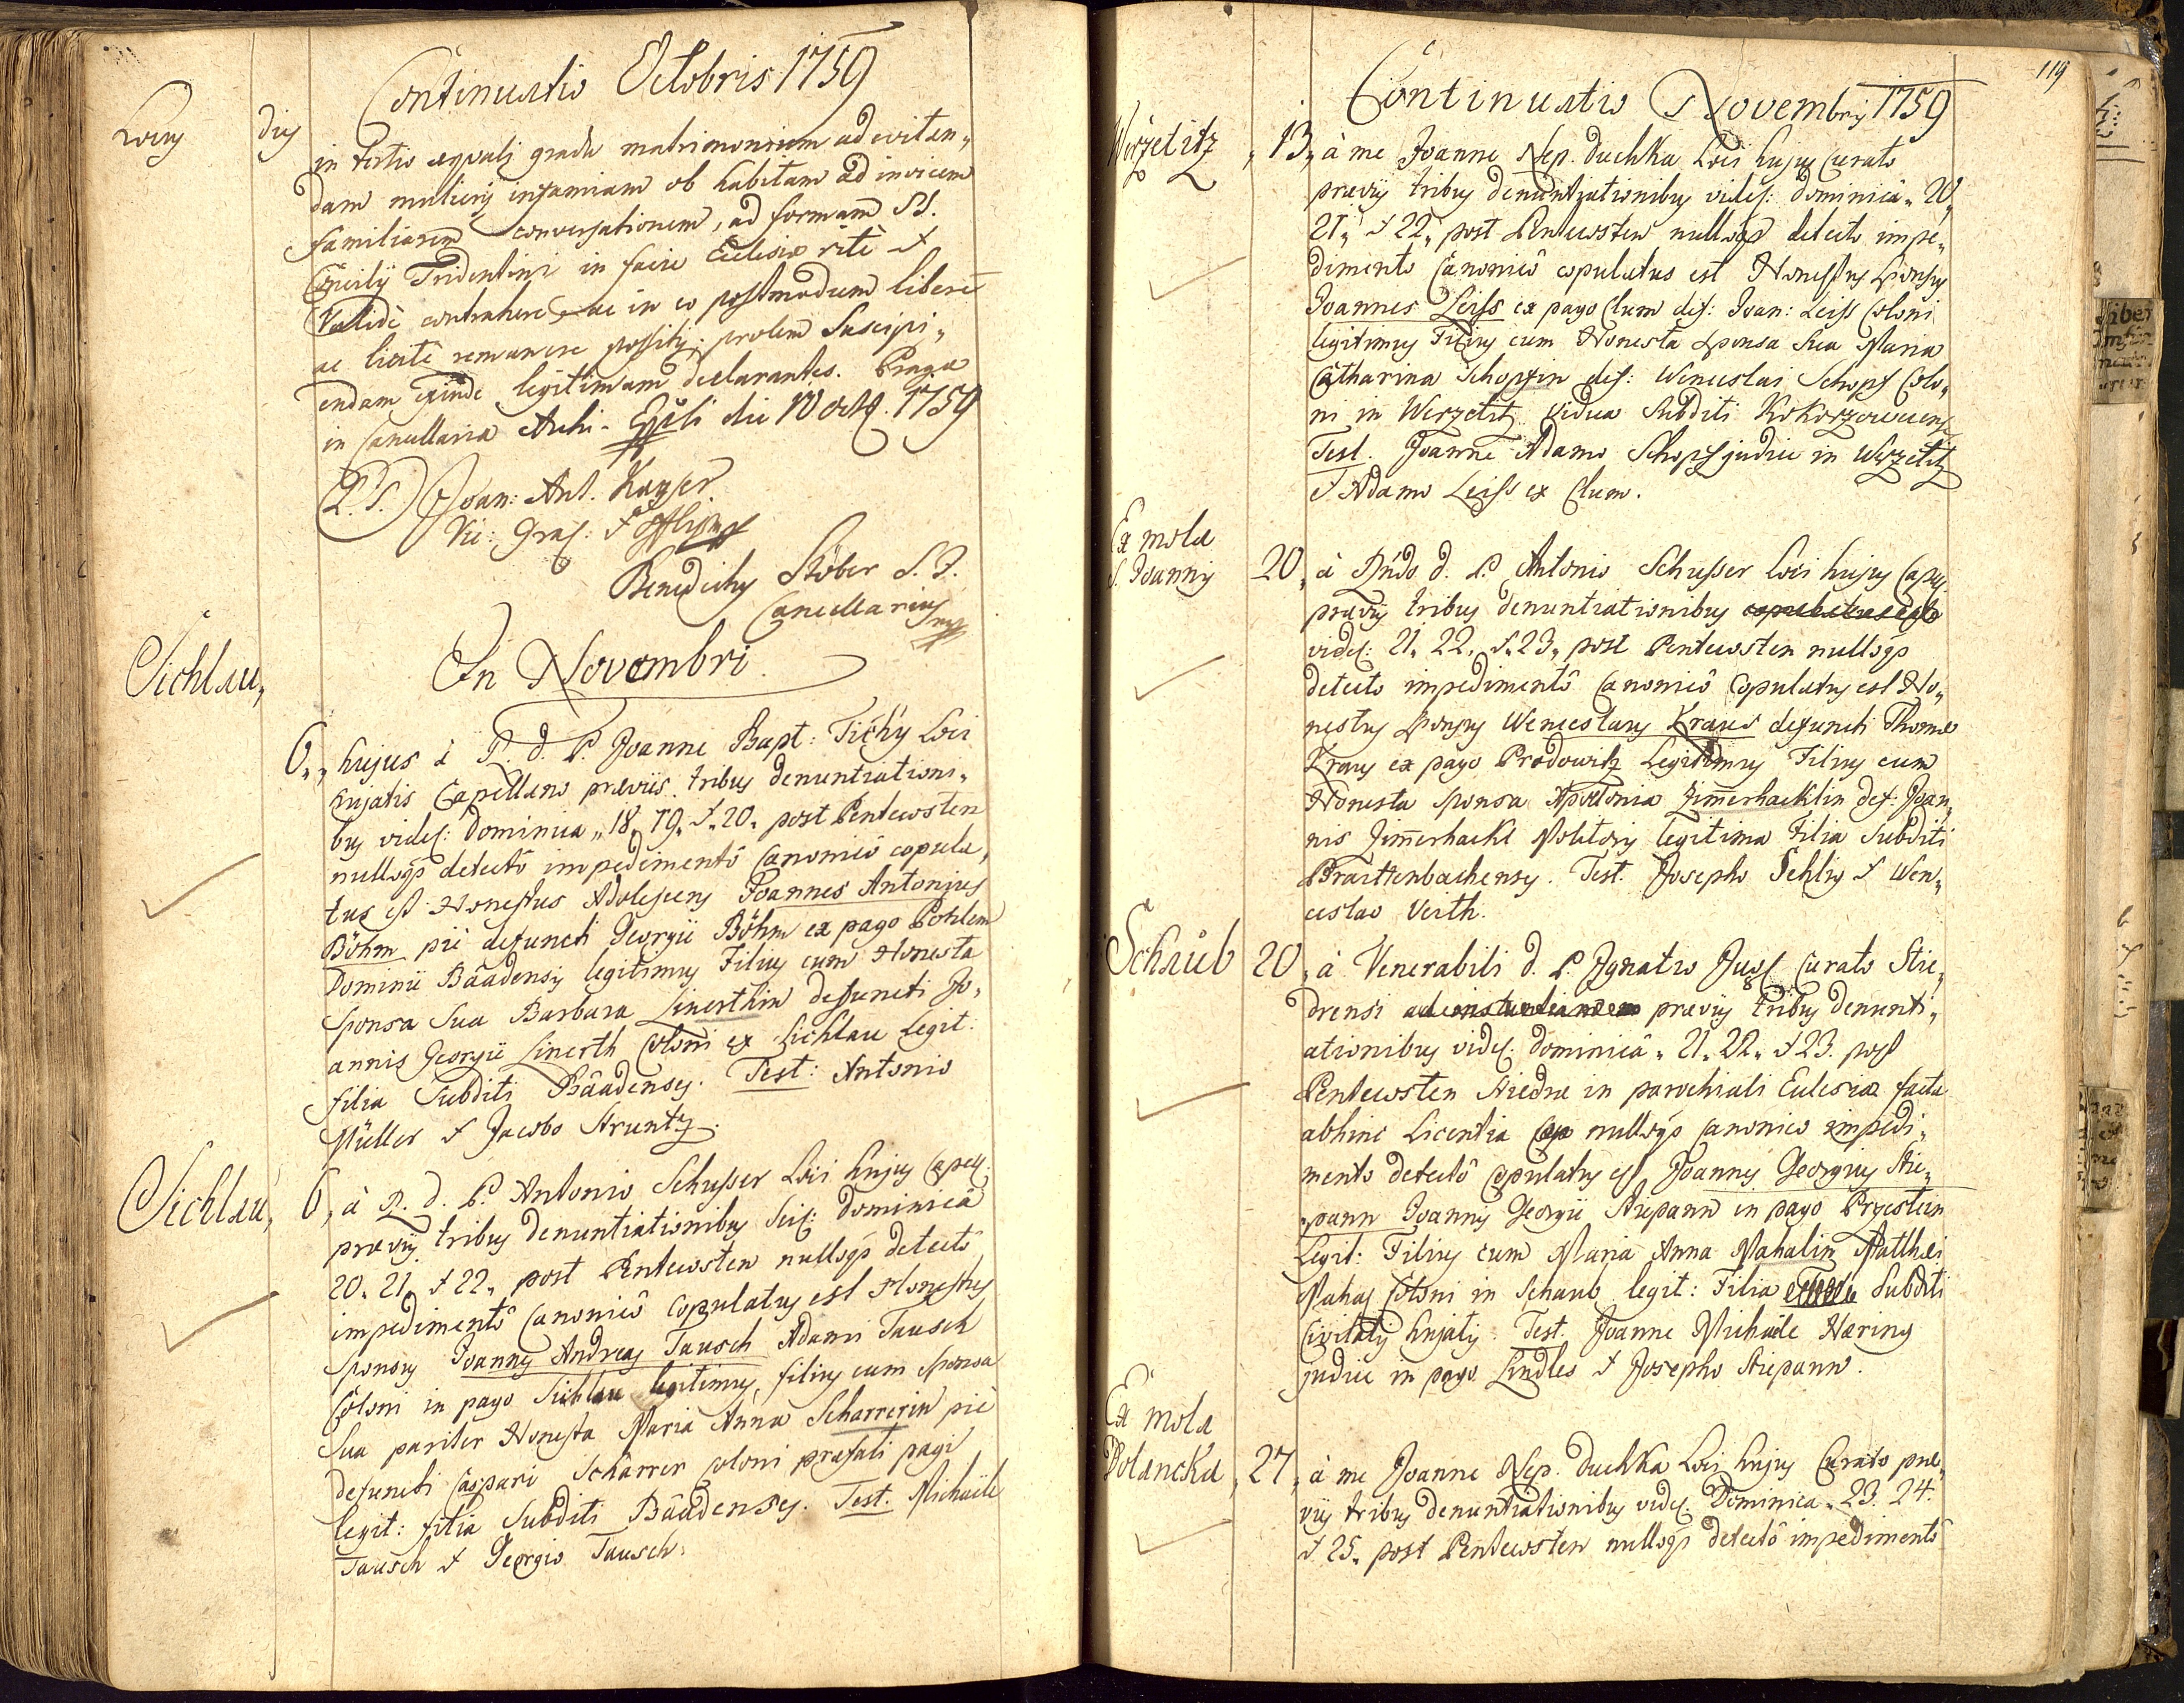 Continuatio Octobris 1759
Locus dies
in tertio aequali gradu matrimonium ad evitan„
dam mulieris infamiam ob habitam ad invicem
familiarem conversationem, ad formam SS.
Concilij Tridentini in facie Ecclesiae ritè et
Validè contrahere, ac in eo postmodum liberè
ac licitè remanere possitis: prolem suscipi„
endam exinde legitimam declarantes. Pragae
in Cancellaria Archi-Eppāli die 10 octb. 1759
L. S. Joan: Ant. Kayser.
Vic: Gral: et Offlis mp
Benedictus Stöber S. J.
Cancellarius mp
In Novembri.
Sichlau„
6„ hujus à P. d. P. Joanne Bapt: Tichý Loci
hujatis Capellano praeviis tribus denuntiationi„
bus videl: Dominica „18„ 19„ et „20„ post Pentecosten
nulloqȝ detectô impedimentô Canonicô copula„
tus est Honestus Adolescens Joannes Antonius
Böhm piè defuncti Georgii Böhm ex pago Pohlem
Dominii Báadensis legitimus Filius cum Honesta
Sponsa Sua Barbara Linerthin defuncti Jo„
annis Georgii Linerth Coloni ex Sichlau legit:
filia Subditi Báadenses. Test: Antonio
Müller et Jacobo Struntz.
Sichlau„ 6„ à R. d. P. Antonio Schusser Loci hujus Capell:
praevijs tribus denuntiationibus Scil: Dominicâ
20„ 21„ et 22„ post Pentecosten nulloqȝ detectô
impedimentô Canonicô Copulatus est Honestus
Sponsus Joannes Andreas Tausch Adami Tausch
Coloni in pago Sichlau legitimus filius cum Sponsa
Sua pariter Honesta Maria Anna Scharrerin piè
defuncti Caspari Scharrer Coloni praefati pagi
legit: filia Subditi Báadenses. Test. Michaële
Tausch et Georgio Tausch.
119
Continuatio Novembris 1759
Werzetitz „13„ à me Joanne Nep. Duchka Loci hujus Curato
praevijs tribus denuntiationibus videl: Dominicâ „20„
21„ et 22„ post Pentecosten nulloqȝ detecto impe„
dimento Canonicô copulatus est Honestus Sponsus
Joannes Leiss ex pago Clum def: Joan: Leiss Coloni
legitimus Filius cum Honesta Sponsa Sua Maria
Catharina Schopfin def: Wenceslai Schopf Colo„
ni in Werzetitz vidua Subditi Kokorzowens:
Test. Joanne Adamo Schopf judice in Werzetitz
et Adamo Leiss ex Clum.
Ex mola
S. Joannis 20„ à Rndo d. P. Antonio Schusser Loci hujus Capell:
praevijs tribus denuntiationibus copulatus est
videl: 21„ 22„ et 23„ post Pentecosten nulloqȝ
detecto impedimentô Canonicô Copulatus est Ho„
nestus Sponsus Wenceslaus Kraus defuncti Thomae
Kraus ex pago Prodowitz Legitimus Filius cum
Honesta Sponsa Apollonia Zim̄erhacklin def: Joan„
nis Zim̄erhackl Molitoris legitima Filia Subditi
Braittenbachenses. Test. Josepho Schlis et Wen„
ceslao Verth.
Schaub 20„ à Venerabili d. P. Ignatio Curato Stie„
drensi praevijs tribus denunti„
ationibus videl: Dominicâ „21„ 22„ et 23. post
Pentecosten Stiedrae in parochiali Ecclesia facta
abhinc Licentia nulloqȝ Canonico impedi„
mento detectô Copulatus est Joannes Georgius Stie„
pann Joannis Georgii Stiepann in pago Przestein
Legit: Filius cum Maria Anna Mahalin Matthaei
Mahal Coloni in Schaub legit: Filia Subditi
Civitatis hujatis. Test. Joanne Michaële Haering
judice in pago Lindles et Josepho Stiepann.
Ex mola
Dolancka „27„ à me Joanne Nep. Duchka Loci hujus Curato prae„
vijs tribus denuntiationibus videl: Dominica „23. 24.
et 25„ post Pentecosten nulloqȝ detectô impedimentô